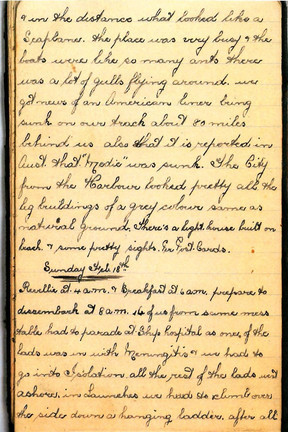 & in the distance what looked like a
Seaplane. the place was very busy & the
boats were like so many ants there
was a lot of gulls flying around. we
got news of an American liner being
sunk on our track about 80 miles
behind us also that it is reported in
Aust. that "Medic" was sunk. The City
from the Harbour looked pretty all the
big buildings of a grey colour same as
natural ground. There's a light house built on
beach. & some pretty sights. For Post. Cards.
Sunday Feb. 18th
Reville at. 4 a.m. & Breakfast at 6 am. prepare to
dissembark at 8 a.m. 16 of us from same mess
table had to parade at Ships hospital as one, of the
lads was in with Meningitis & we had to
go into Isolation. all the rest of the lads went
ashore, in Launches we had to climb over
the side down a hanging ladder. after all